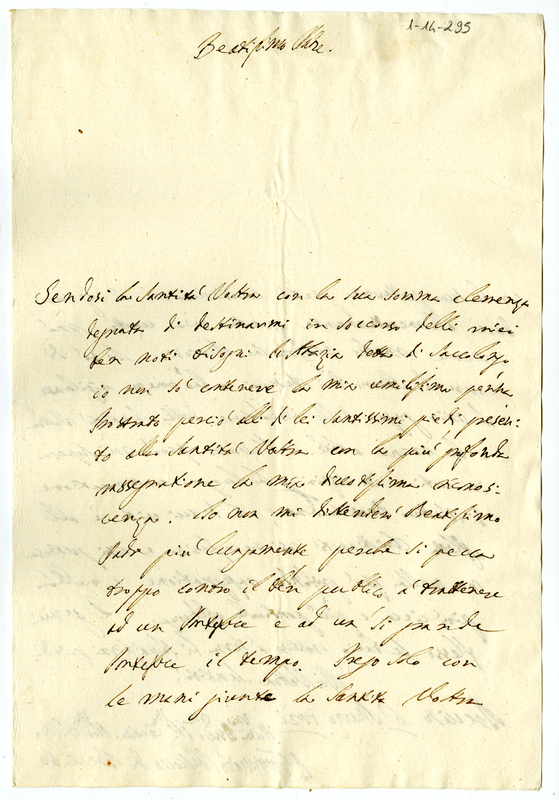 1-14-295
Beatissimo Padre.
Sendosi la Santità Vostra con la sua somma clemenza
degnata di destinarmi in soccorso delli miei
ben noti bisogni la Badia detta di Saccolongo
io non sò contenere la mia umilissima penna
Prostrato perciò alli di lei Santissimi piedi presen-
to alla Santità Vostra con la più profonda
rassegnatione la mia divotissima riconos-
cenza. Io non mi distenderò Beatissimo
Padre più lungamente perche si pecca
troppo contro il ben publico à trattenere
ad un Pontefice e ad un sì grande
Pontefice il tempo. Prego solo con
le mani giunte la Santità Vostra